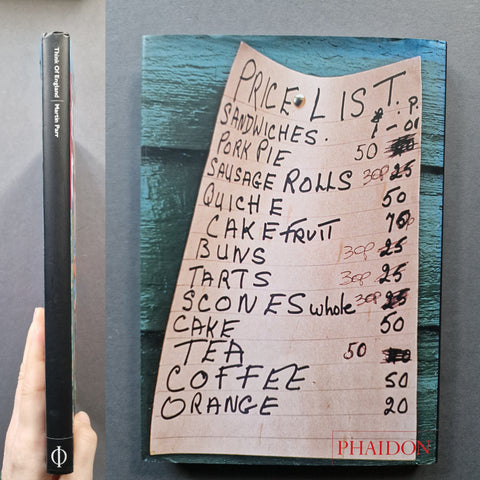 Think Of England | Martin Parr
PRICE LIST.
£. P.
SANDWICHES. 1-00
PORK PIE 50
SAUSAGE ROLLS 30p 25
QUICHE 50
CAKE FRUIT
BUNS 30p 25
TARTS 30p 25
SCONES whole 30p 25
CAKE 50
TEA 50
COFFEE 50
ORANGE 20
PHAIDON